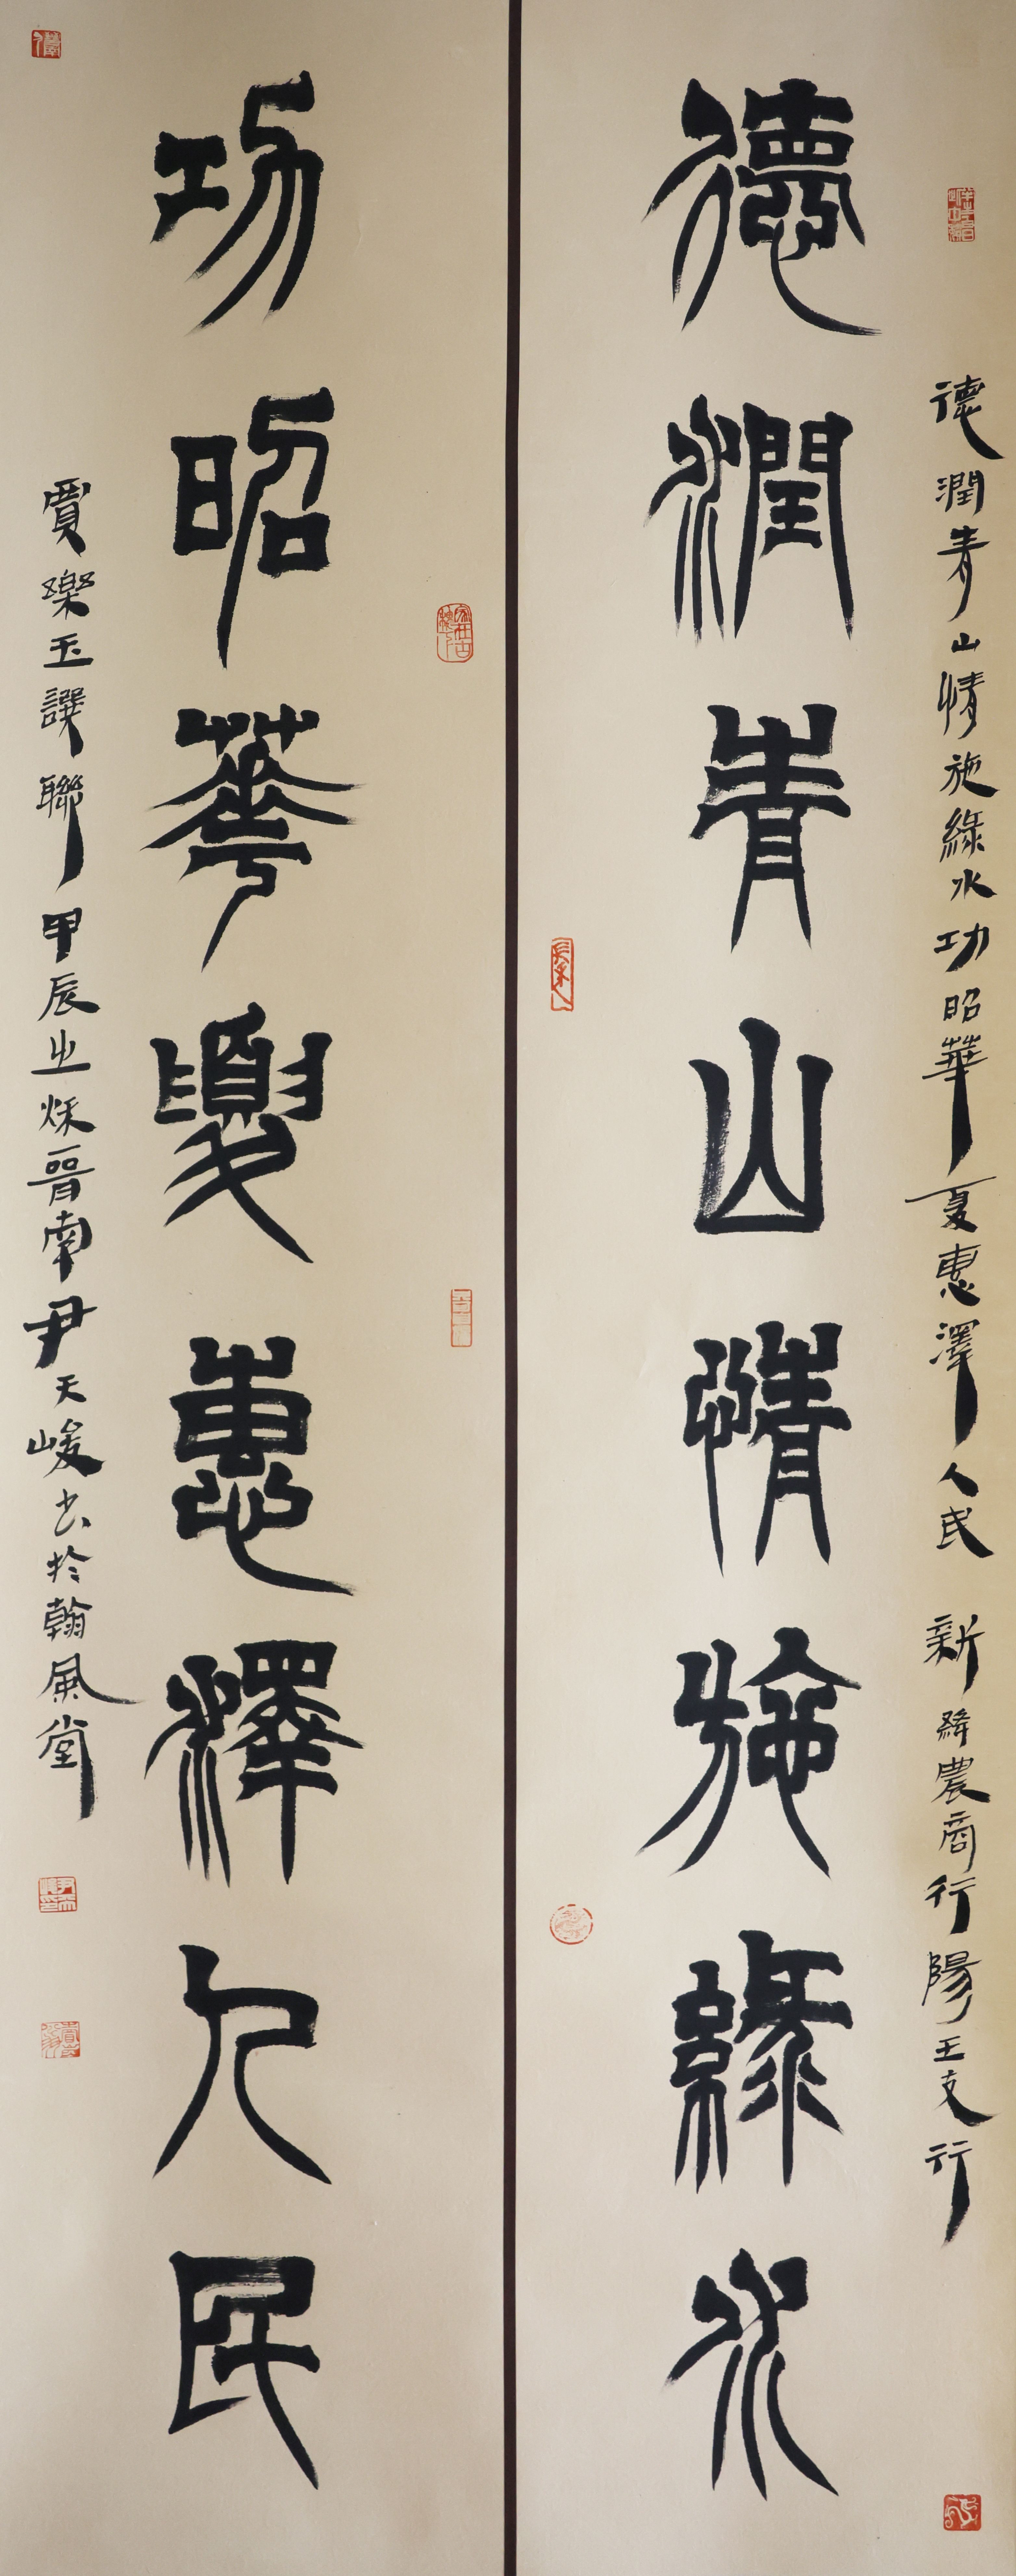 德潤青山情施綠水功昭華夏惠澤人民 新絳農商行陽王支行
德潤青山情施綠水
功昭華夏惠澤人民
賈樂玉譔聯甲辰之秌晉南尹天峻书於翰風堂